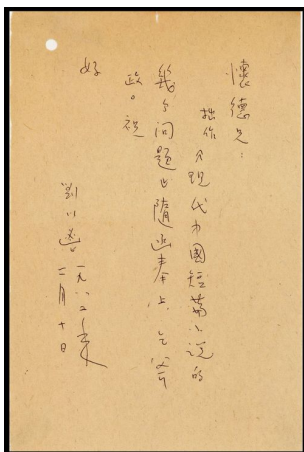 懷德兄：
拙作〈現代中國短篇小说的
幾个问題〉隨函奉上，乞斧
政。祝
好
劉以鬯 一九八二年
二月十日